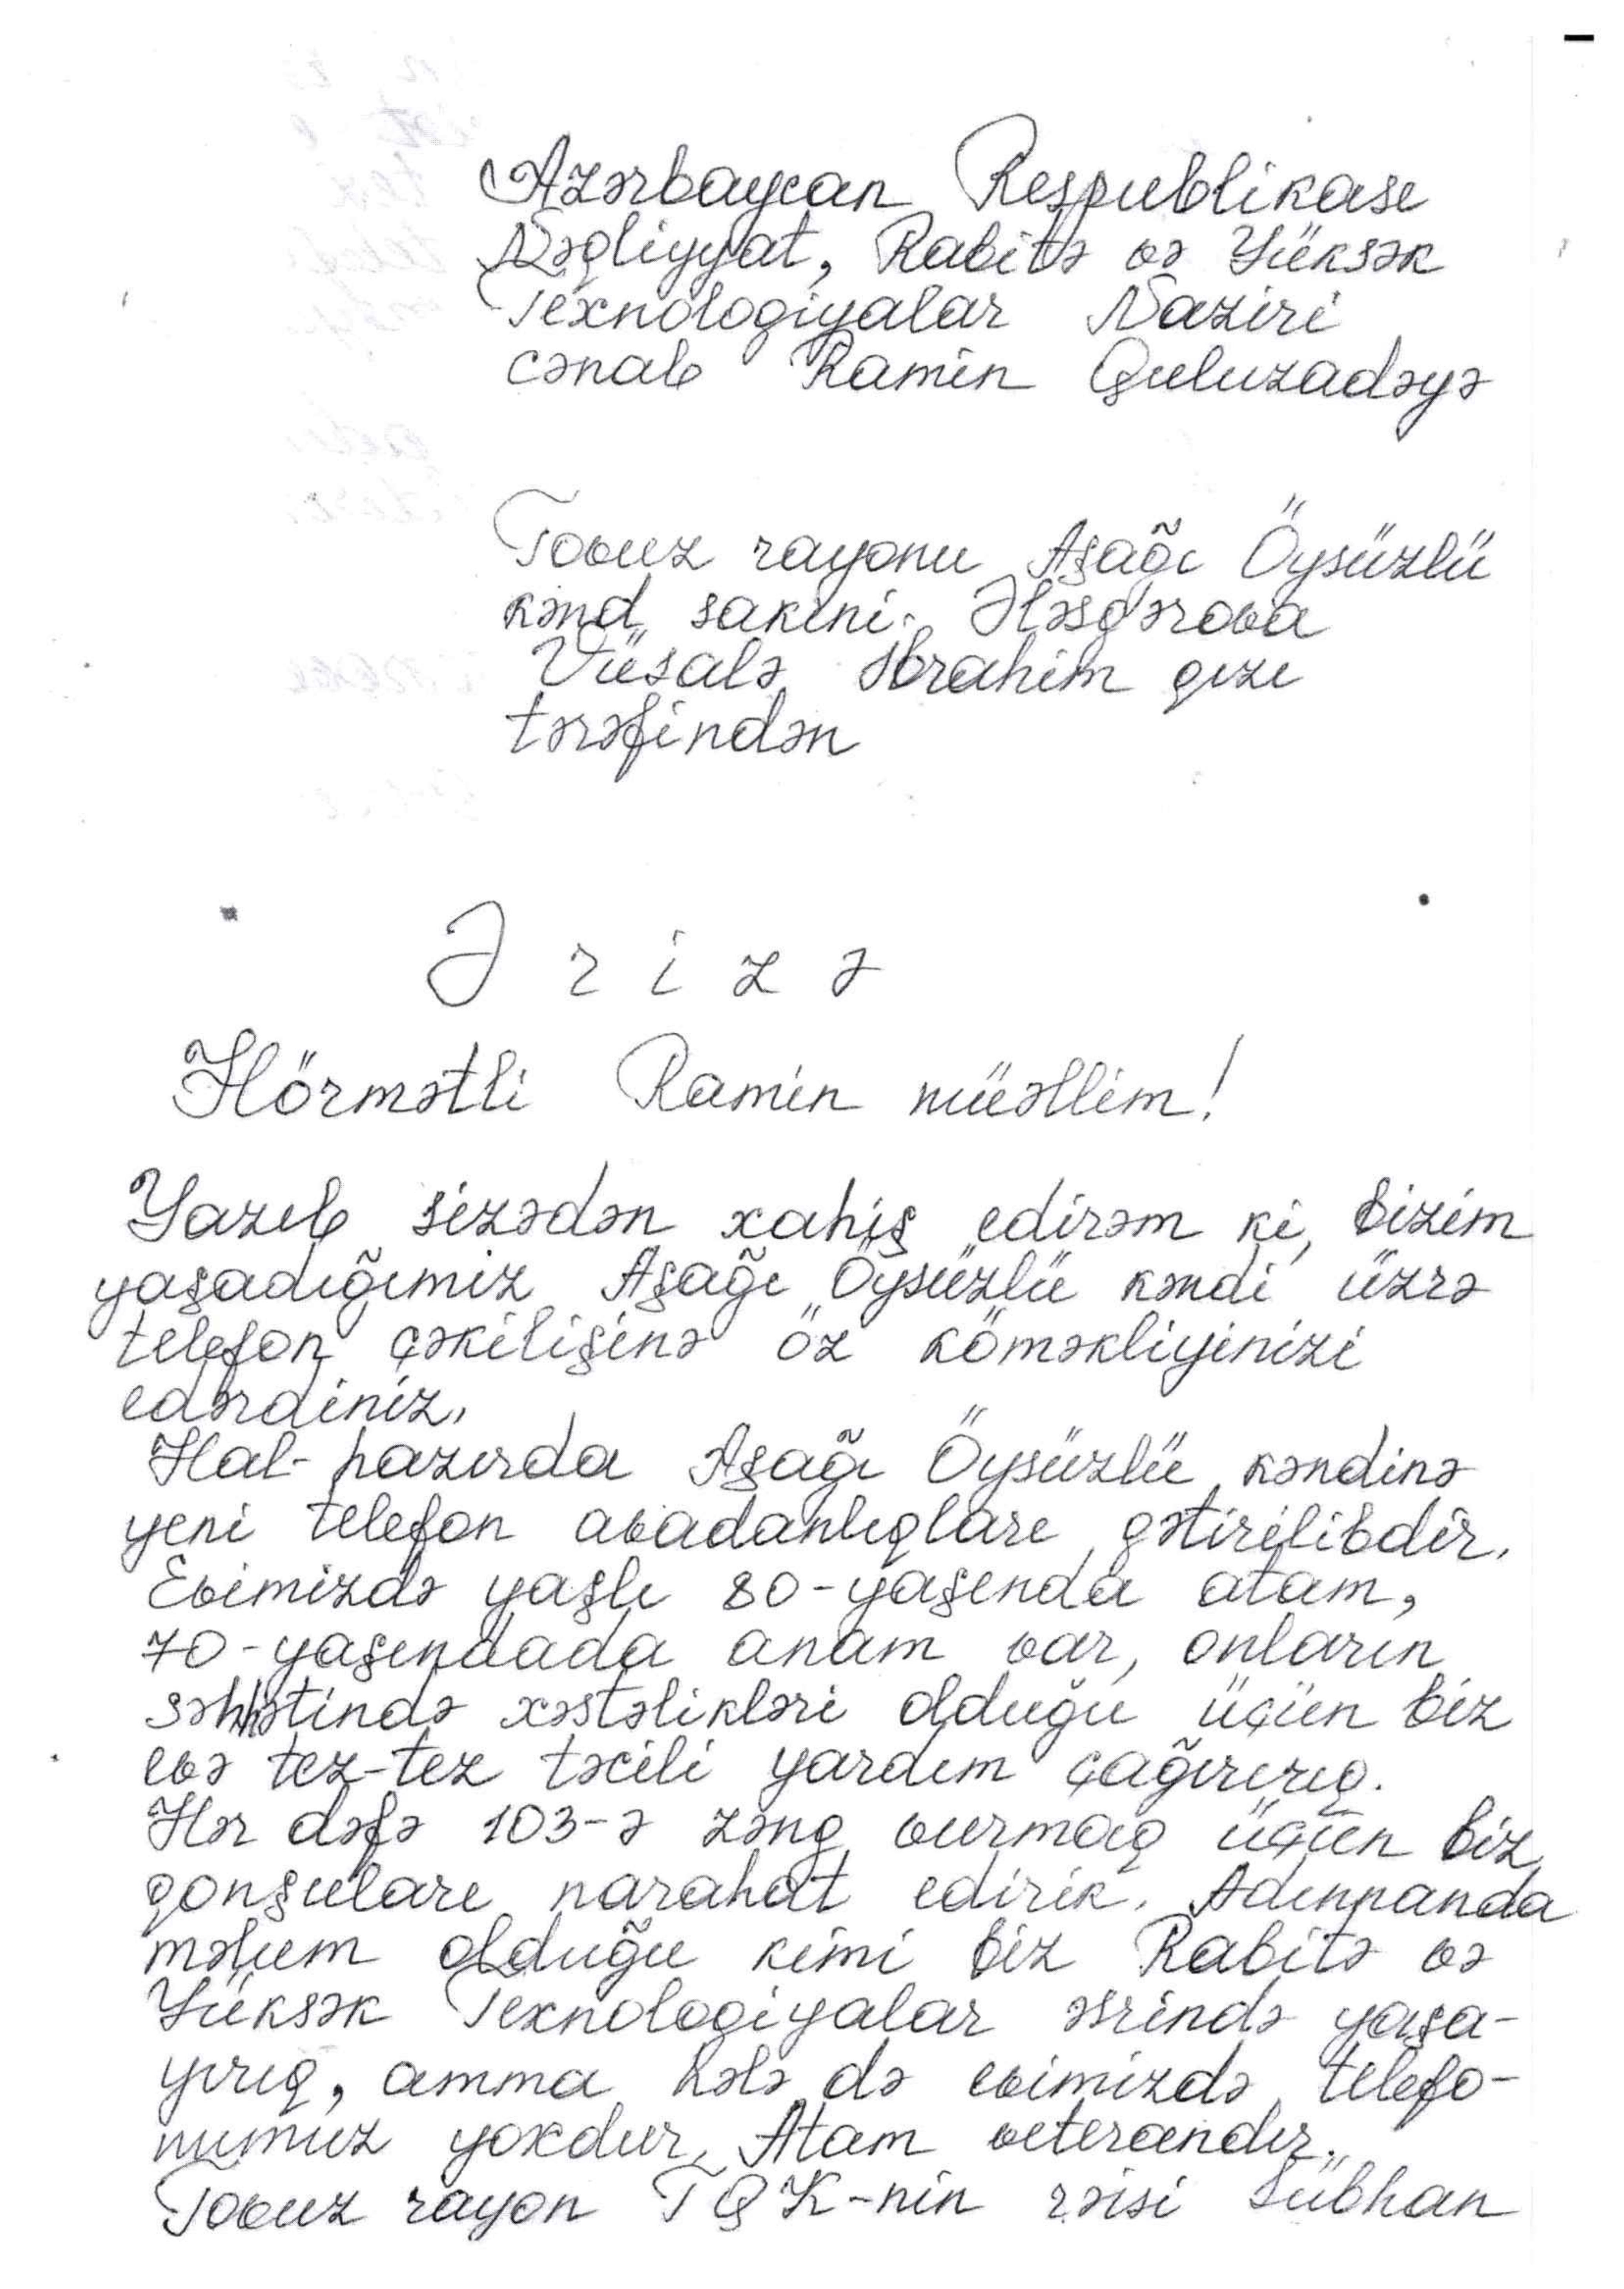 Azərbaycan Respublikası
Nəqliyyat, Rabitə və Yüksək
Texnologiyalar Naziri
cənab Ramin Quluzadəyə
Tovuz rayonu Aşağı Öysüzlü
kənd sakini. Ələsgərova
Vüsalə İbrahim qızı
tərəfindən
Ərizə
Hörmətli Ramin müəllim!
Yazıb sizədən xahiş edirəm ki, bizim
yaşadığımız Aşağı Öysüzlü kəndi üzrə
telefon çəkilişinə öz köməkliyinizi
edərdiniz.
Hal-hazırda Aşağı Öysüzlü kəndinə
yeni telefon avadanlıqları gətirilibdir.
Evimizdə yaşlı 80-yaşında atam,
70-yaşındada anam var, onların
səhhətində xəstəlikləri olduğu üçün biz
evə tez-tez təcili yardım çağırırıq.
Hər dəfə 103-ə zəng vurmaq üçün biz
qonşuları narahat edirik. Adınnanda
məlum olduğu kimi biz Rabitə və
Yüksək Texnologiyalar əsrində yaşa-
yırıq, amma hələ də evimizdə telefo-
numuz yoxdur. Atam veterandır.
Tovuz rayon TQK-nin rəisi Sübhan